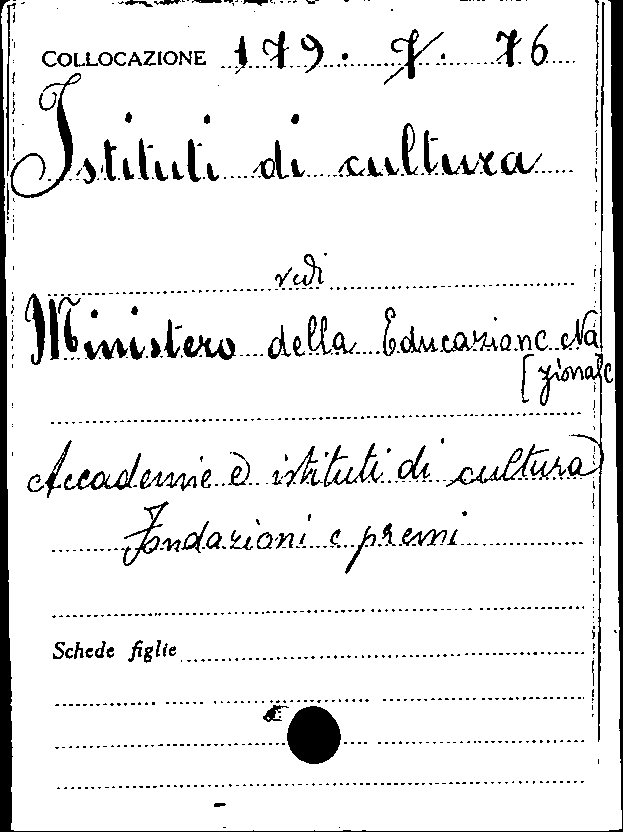 COLLOCAZIONE 179. 7. 76
Istituti di cultura
vedi
Ministero della Educazione Na
[zionale
Accademie e istituti di cultura
Fondazioni e premi
Schede figlie